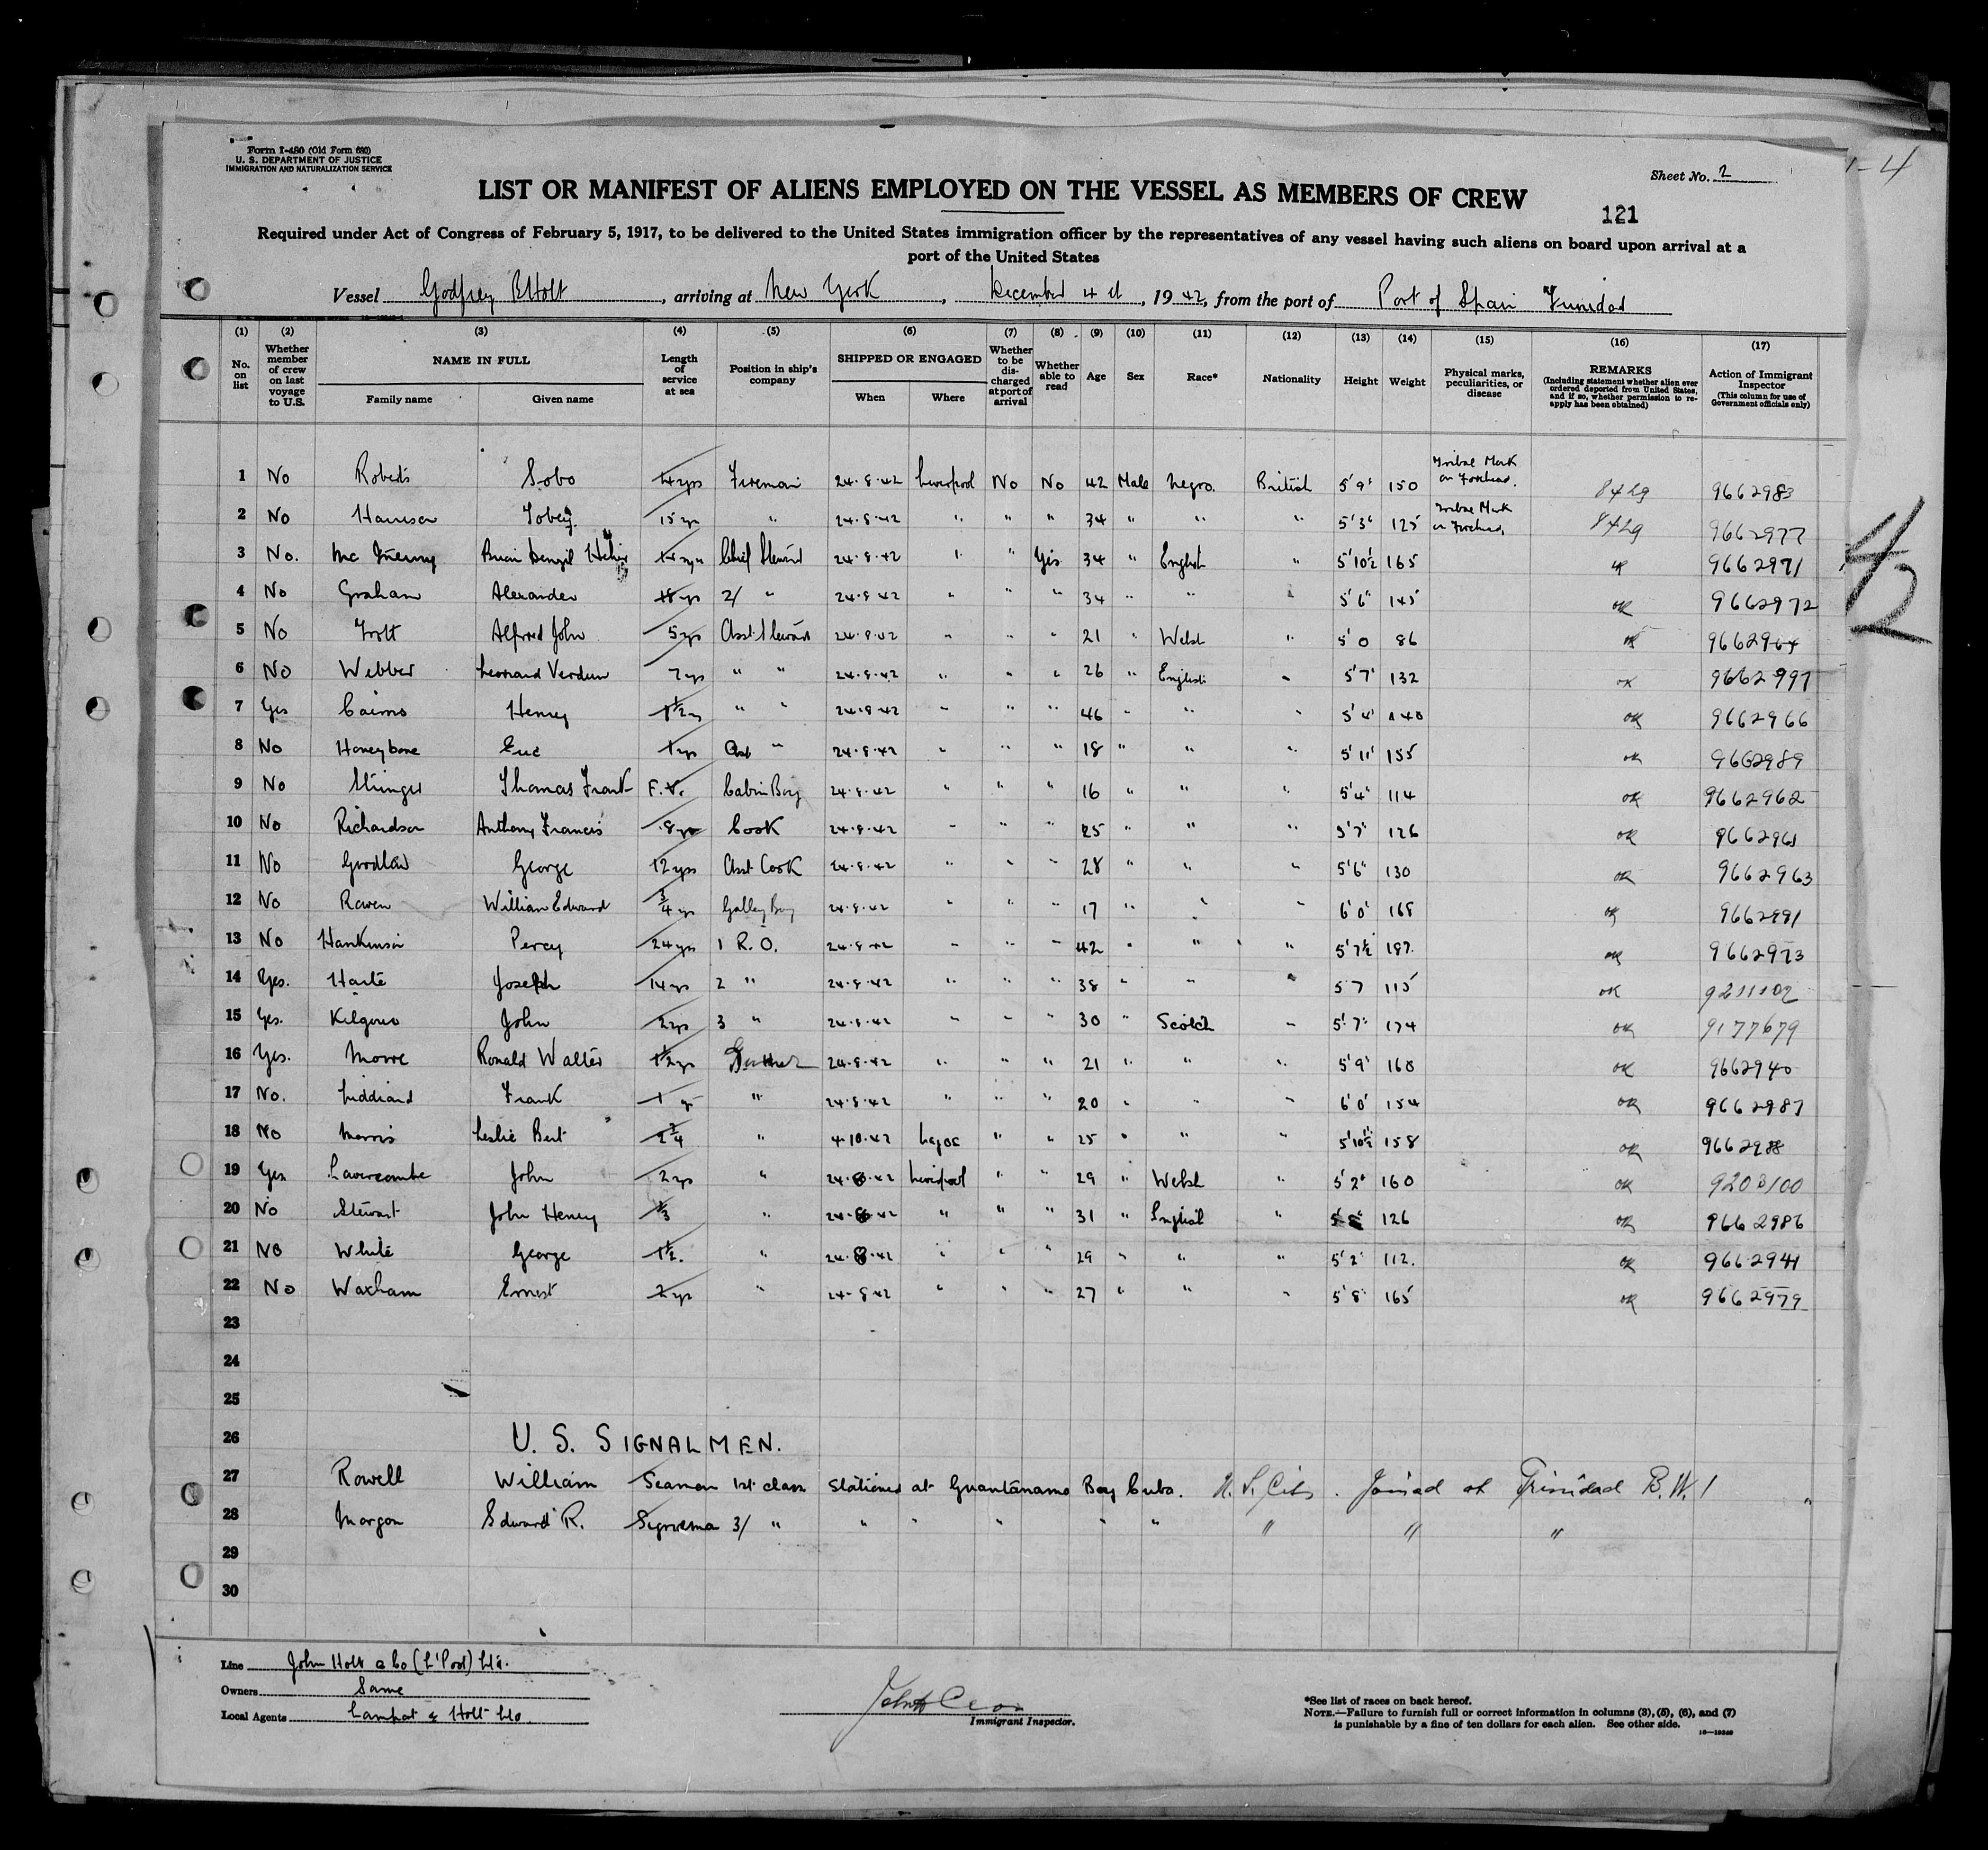 Form I-480 (Old Form 680)
U. S. DEPARTMENT OF JUSTICE
IMMIGRATION AND NATURALIZATION SERVICE
Sheet No. 2
1-4
LIST OR MANIFEST OF ALIENS EMPLOYED ON THE VESSEL AS MEMBERS OF CREW
121
Required under Act of Congress of February 5, 1917, to be delivered to the United States immigration officer by the representatives of any vessel having such aliens on board upon arrival at a
port of the United States
Vessel Godfrey B Holt, arriving at New York, December 4th, 1942, from the port of Port of Spain Trinidad
(1) (2) (3) (4) (5) (6) (7) (8) (9) (10) (11) (12) (13) (14) (15) (16) (17)
No. on list
Whether member of crew on last voyage to U.S.
NAME IN FULL
Family name
Given name
Length of service at sea
Position in ship's company
SHIPPED OR ENGAGED
When
Where
Whether to be discharged at port of arrival
Whether able to read
Age
Sex
Race*
Nationality
Height
Weight
Physical marks, peculiarities, or disease
REMARKS
(Including statement whether alien ever ordered deported from United States, and if so, whether permission to reapply has been obtained)
Action of Immigrant Inspector
(This column for use of Government officials only)
1 No Roberts Sobo 4 yrs Fireman 24.8.42 Liverpool No No 42 Male Negro British 5'9" 150 Tribal Mark on Forehead. 9662983
2 No Harrison Tobey 15 yrs " 24.8.42 " " " 34 " " " 5'3" 125 Tribal Mark on Forehead. 9662977
3 No. Brian Denzil Chief Steward 24.8.42 " " Yes 34 " English " 5'10½ 165 ok 9662971
4 No Graham Alexander 18 yrs 2/ " 24.8.42 " " " 34 " " " 5'6" 145 ok 9662972
5 No Alfred John 5 yrs Asst. Steward 24.8.42 " " " 21 " Welsh " 5'0 86 ok 9662964
6 No Webber Leonard Verdun 7 yrs " " 24.8.42 " " " 26 " English " 5'7" 132 ok 9662997
7 Yes Cairns Henry 1½ yrs " " 24.8.42 " " " 46 " " " 5'4" 140 ok 9662966
8 No Honeybone Eric 1 yr Asst " 24.8.42 " " " 18 " " " 5'11" 155 ok 9662989
9 No Stringer Thomas Frank F.V. Cabin Boy 24.8.42 " " " 16 " " " 5'4" 114 ok 9662962
10 No Richardson Anthony Francis 8 yrs Cook 24.8.42 " " " 25 " " " 5'7" 126 ok 9662961
11 No Goodlad George 12 yrs Asst Cook 24.8.42 " " " 28 " " " 5'6" 130 ok 9662963
12 No Rowen William Edward ¾ yr Galley Boy 24.8.42 " " " 17 " " " 6'0" 168 ok 9662991
13 No Hankinson Percy 24 yrs 1 R.O. 24.8.42 " " " 42 " " " 5'7½ 187. ok 9662973
14 Yes. Harte Joseph 14 yrs 2 " 24.8.42 " " " 38 " " " 5 7 115 ok 9211102
15 Yes. Kilgour John 2 yrs 3 " 24.8.42 " " " 30 " Scotch " 5'7" 174 ok 9177679
16 Yes. Moore Ronald Walter 1½ yrs Gunner 24.8.42 " " " 21 " " " 5'9" 168 ok 9662940
17 No. Liddiard Frank 1 yr " 24.8.42 " " " 20 " " " 6'0" 154 ok 9662987
18 No Morris Leslie Bert 2¾ " 4.10.42 Lagos " " 25 " " " 5'10½ 158 ok 9662988
19 Yes Lavercombe John 2 yrs " 24.8.42 Liverpool " " 29 " Welsh " 5'2" 160 ok 9200100
20 No Stewart John Henry " 24.8.42 " " " 31 " English " 126 ok 9662986
21 No White George 1½. " 24.8.42 " " " 29 " " " 5'2" 112. ok 9662941
22 No Waxham Ernest 2 yrs " 24-8.42 " " " 27 " " " 5'8" 165 ok 9662979
23
24
25
26 U. S. SIGNALMEN.
27 Rowell William Seaman 1st class Stationed at Guantanamo Bay Cuba. U.S. Citz. Joined at Trinidad B.W.I "
28 Morgan Edward R. 3/ " " " " " " " " "
29
30
42
Line John Holt & Co (L'Pool) Ltd.
Owners Same
Local Agents Lamport & Holt Ltd.
Immigrant Inspector.
*See list of races on back hereof.
NOTE.—Failure to furnish full or correct information in columns (3), (5), (6), and (7)
is punishable by a fine of ten dollars for each alien. See other side.